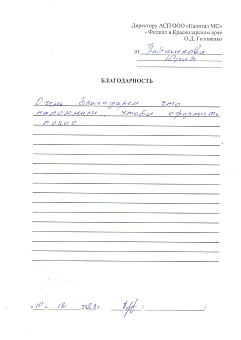 Директору АСП ООО «Капитал МС»
- Филиал в Краснодарском крае
О.Д. Головенко
от Паршикова
Юрия
БЛАГОДАРНОСТЬ
Очень благодарен что
напомнили, чтобы оформить
полис
«10» 12